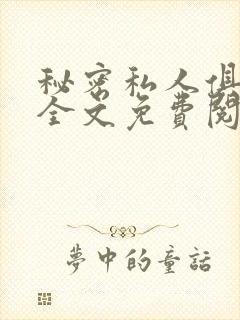 秘密私人俱
全文免費閱
夢中的童話